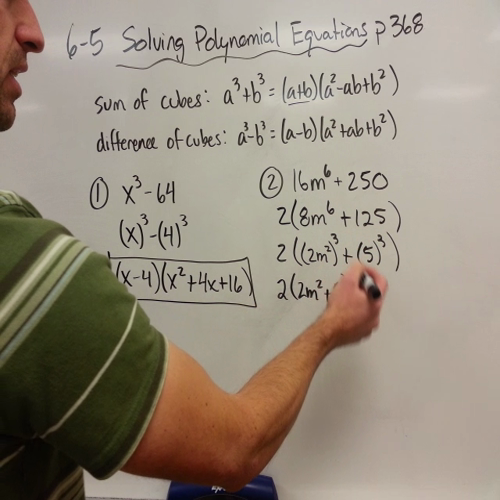 6-5 Solving Polynomial Equations p 368
sum of cubes: a³+b³ = (a+b)(a²-ab+b²)
difference of cubes: a³-b³ = (a-b)(a²+ab+b²)
① x³-64
(x)³-(4)³
(x-4)(x²+4x+16)
② 16m⁶+250
2(8m⁶+125)
2((2m²)³+(5)³)
2(2m²+